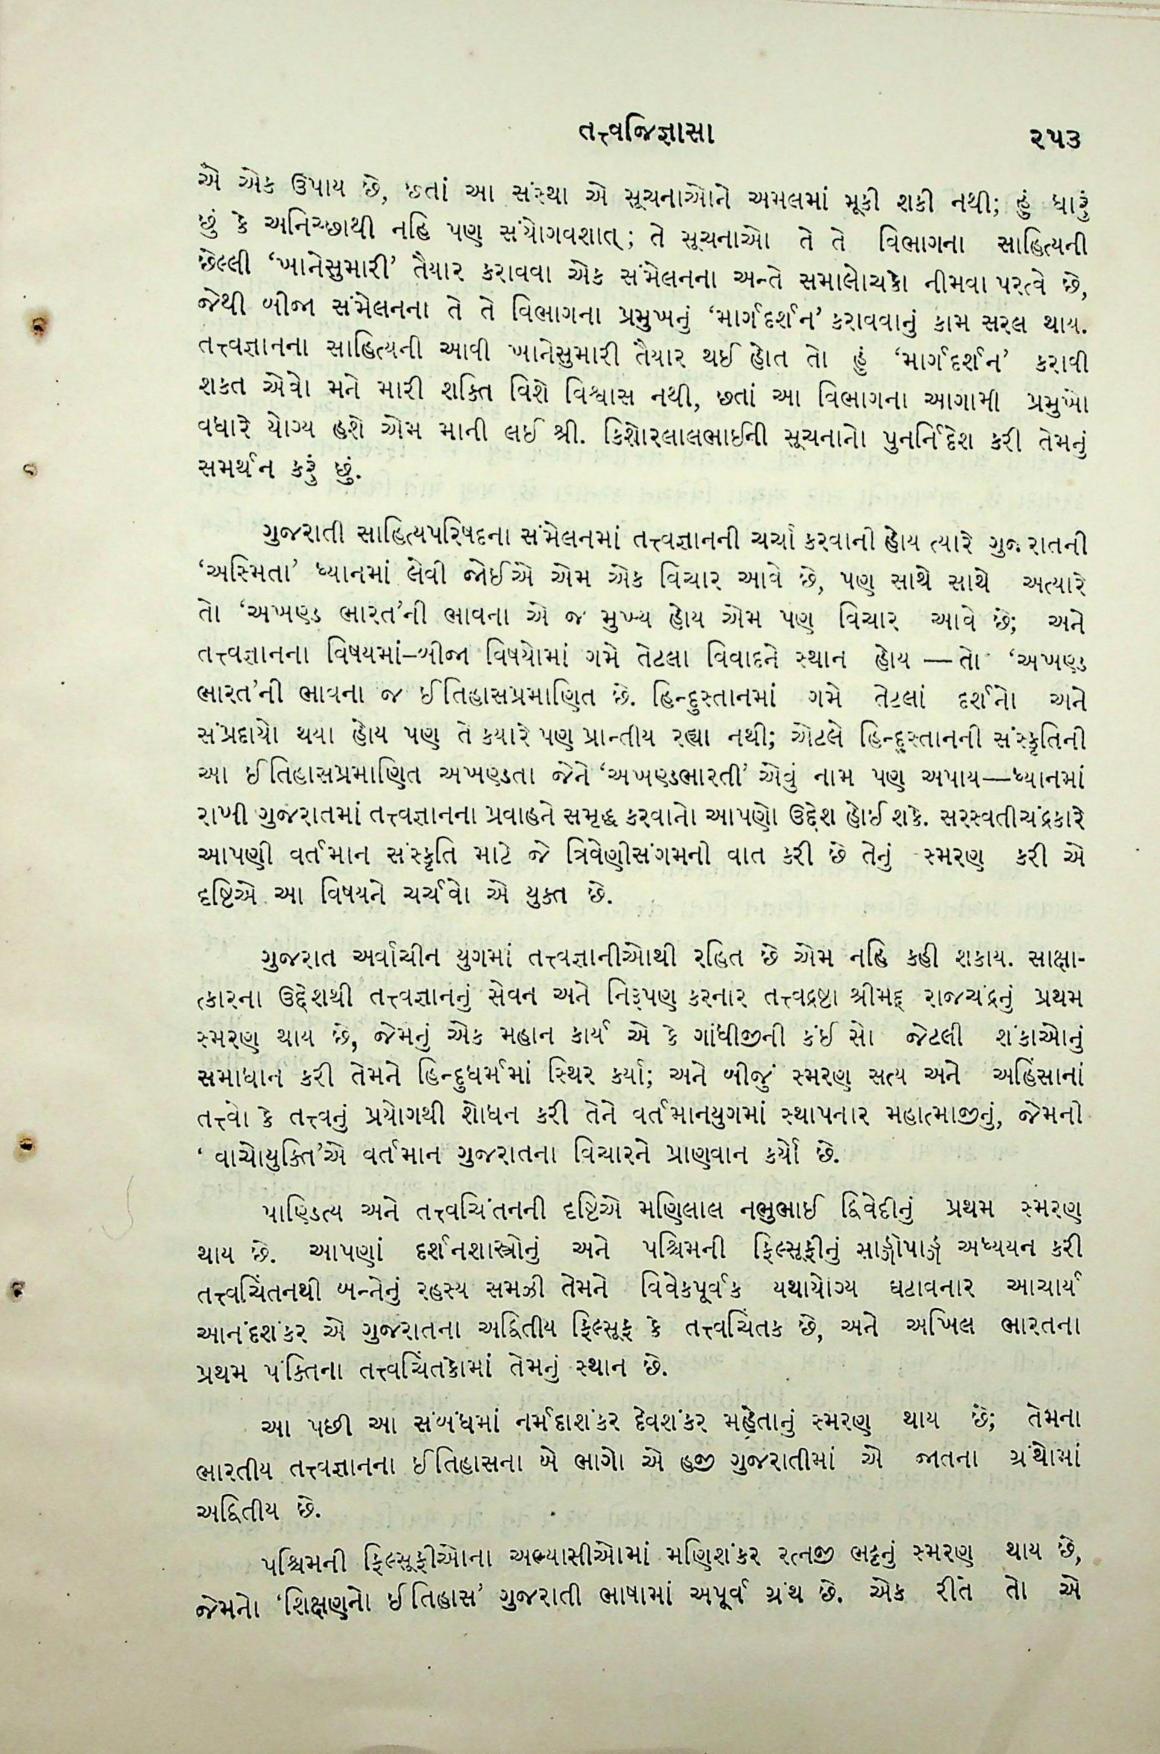 તત્ત્વજિજ્ઞાસા ૨૫૩
એ એક ઉપાય છે, છતાં આ સંસ્થા એ સૂચનાઓને અમલમાં મૂકી શકી નથી; હું ધારું
છું કે અનિચ્છાથી નહિ પણ સંયોગવશાત્; તે સૂચનાઓ તે તે વિભાગના સાહિત્યની
છેલ્લી ‘ખાનેસુમારી’ તૈયાર કરાવવા એક સંમેલનના અન્તે સમાલોચકો નીમવા પરત્વે છે,
જેથી બીજા સંમેલનના તે તે વિભાગના પ્રમુખનું ‘માર્ગદર્શન’ કરાવવાનું કામ સરલ થાય.
તત્ત્વજ્ઞાનના સાહિત્યની આવી ખાનેસુમારી તૈયાર થઈ હોત તો હું ‘માર્ગદર્શન’ કરાવી
શકત એવો મને મારી શક્તિ વિશે વિશ્વાસ નથી, છતાં આ વિભાગના આગામી પ્રમુખો
વધારે યોગ્ય હશે એમ માની લઈ શ્રી. કિશોરલાલભાઈની સૂચનાનો પુનર્નિદેશ કરી તેમનું
સમર્થન કરું છું.
ગુજરાતી સાહિત્યપરિષદના સંમેલનમાં તત્ત્વજ્ઞાનની ચર્ચા કરવાની હોય ત્યારે ગુજરાતની
‘અસ્મિતા’ ધ્યાનમાં લેવી જોઈએ એમ એક વિચાર આવે છે, પણ સાથે સાથે અત્યારે
તો ‘અખણ્ડ ભારત’ની ભાવના એ જ મુખ્ય હોય એમ પણ વિચાર આવે છે; અને
તત્ત્વજ્ઞાનના વિષયમાં–બીજા વિષયોમાં ગમે તેટલા વિવાદને સ્થાન હોય — તો ‘અખણ્ડ
ભારત’ની ભાવના જ ઈતિહાસપ્રમાણિત છે. હિન્દુસ્તાનમાં ગમે તેટલાં દર્શનો અને
સંપ્રદાયો થયા હોય પણ તે કયારે પણ પ્રાન્તીય રહ્યા નથી; એટલે હિન્દુસ્તાનની સંસ્કૃતિની
આ ઈતિહાસપ્રમાણિત અખણ્ડતા જેને ‘અખણ્ડભારતી’ એવું નામ પણ અપાય—ધ્યાનમાં
રાખી ગુજરાતમાં તત્ત્વજ્ઞાનના પ્રવાહને સમૃદ્ધ કરવાનો આપણો ઉદ્દેશ હોઈ શકે. સરસ્વતીચંદ્રકારે
આપણી વર્તમાન સંસ્કૃતિ માટે જે ત્રિવેણીસંગમની વાત કરી છે તેનું સ્મરણ કરી એ
દૃષ્ટિએ આ વિષયને ચર્ચવો એ યુક્ત છે.
ગુજરાત અર્વાચીન યુગમાં તત્ત્વજ્ઞાનીઓથી રહિત છે એમ નહિ કહી શકાય. સાક્ષા-
ત્કારના ઉદ્દેશથી તત્ત્વજ્ઞાનનું સેવન અને નિરૂપણ કરનાર તત્ત્વદ્રષ્ટા શ્રીમદ્ રાજચંદ્રનું પ્રથમ
સ્મરણ થાય છે, જેમનું એક મહાન કાર્ય એ કે ગાંધીજીની કંઈ સો જેટલી શંકાઓનું
સમાધાન કરી તેમને હિન્દુધર્મમાં સ્થિર કર્યા; અને બીજું સ્મરણ સત્ય અને અહિંસાનાં
તત્ત્વો કે તત્ત્વનું પ્રયોગથી શોધન કરી તેને વર્તમાનયુગમાં સ્થાપનાર મહાત્માજીનું, જેમની
‘ વાચોયુક્તિ’એ વર્તમાન ગુજરાતના વિચારને પ્રાણવાન કર્યો છે.
પાણ્ડિત્ય અને તત્ત્વચિંતનની દૃષ્ટિએ મણિલાલ નભુભાઈ દ્વિવેદીનું પ્રથમ સ્મરણ
થાય છે. આપણાં દર્શનશાસ્ત્રોનું અને પશ્ચિમની ફિલ્સૂફીનું સાઙ્ગોપાઙ્ગ અધ્યયન કરી
તત્ત્વચિંતનથી બન્નેનું રહસ્ય સમઝી તેમને વિવેકપૂર્વક યથાયોગ્ય ઘટાવનાર આચાર્ય
આનંદશંકર એ ગુજરાતના અદ્વિતીય ફિલ્સૂફ કે તત્ત્વચિંતક છે, અને અખિલ ભારતના
પ્રથમ પંક્તિના તત્ત્વચિંતકોમાં તેમનું સ્થાન છે.
આ પછી આ સંબંધમાં નર્મદાશંકર દેવશંકર મહેતાનું સ્મરણ થાય છે; તેમના
ભારતીય તત્ત્વજ્ઞાનના ઈતિહાસના બે ભાગો એ હજી ગુજરાતીમાં એ જાતના ગ્રંથોમાં
અદ્વિતીય છે.
પશ્ચિમની ફિલ્સૂફીઓના અભ્યાસીઓમાં મણિશંકર રત્નજી ભટ્ટનું સ્મરણ થાય છે,
જેમનો ‘શિક્ષણનો ઈતિહાસ’ ગુજરાતી ભાષામાં અપૂર્વ ગ્રંથ છે. એક રીતે તો એ